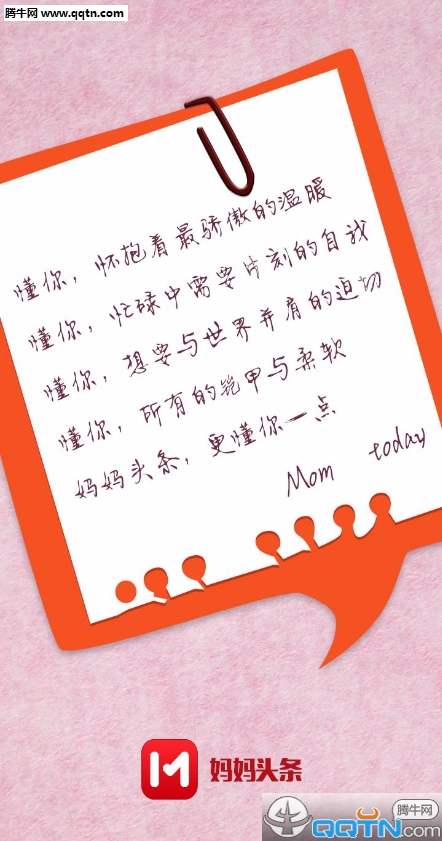 腾牛网 www.qqtn.com
懂你，怀抱着最骄傲的温暖
懂你，忙碌中需要片刻的自我
懂你，想要与世界并肩的迫切
懂你，所有的铠甲与柔软
妈妈头条，更懂你一点
Mom today
妈妈头条
腾牛网
QQTN.COM